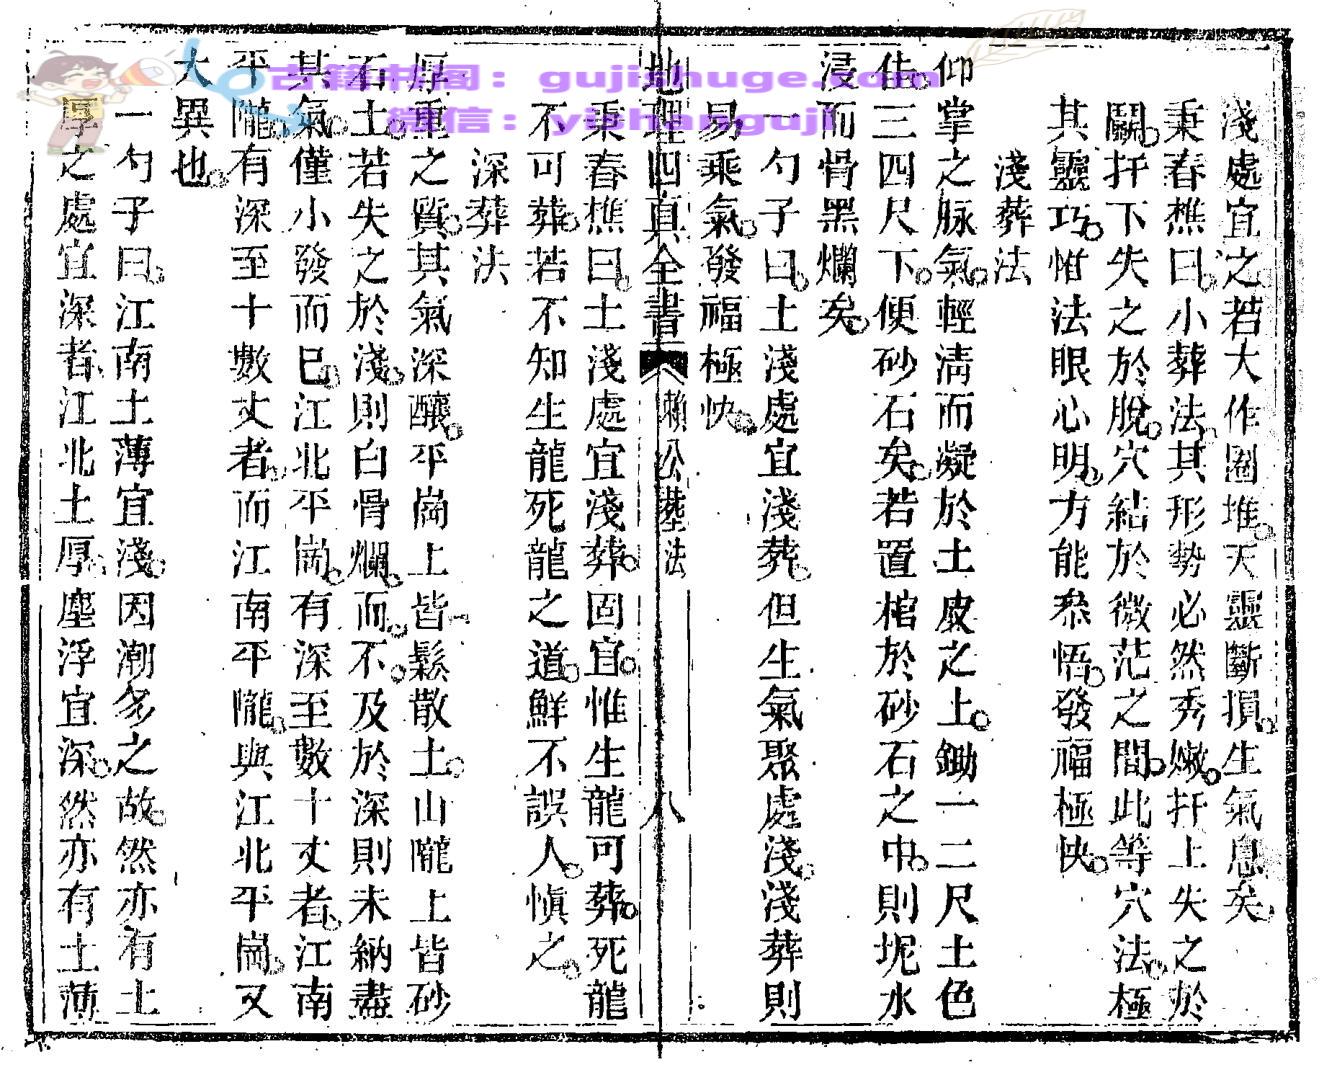 淺處宜之若大作圈堆天靈斷損生氣息矣
秉春樵曰小葬法其形勢必然秀嫩扦上失之於
鬭扦下失之於脫穴結於微茫之間此等穴法極
其靈巧惟法眼心明方能叅悟發福極快
淺葬法
仰掌之脉氣輕清而凝於土皮之上鋤一二尺土色
佳三四尺下便砂石矣若置棺於砂石之中則坭水
浸而骨黑爛矣
一勺子曰土淺處宜淺葬但生氣聚處淺淺葬則
易乘氣發福極快
地理四真全書 賴公葬法 八
秉春樵曰土淺處宜淺葬固宜惟生龍可葬死龍
不可葬若不知生龍死龍之道鮮不誤人愼之
深葬法
厚重之質其氣深釀平崗上皆鬆散土山隴上皆砂
石土若失之於淺則白骨爛而不及於深則未納盡
其氣僅小發而已江北平崗有深至數十丈者江南
平隴有深至十數丈者而江南平隴與江北平崗又
大異也
一勺子曰江南土薄宜淺因潮多之故然亦有土
厚之處宜深者江北土厚塵浮宜深然亦有土薄
古籍书阁：gujishuge.com
微信：yishanguji